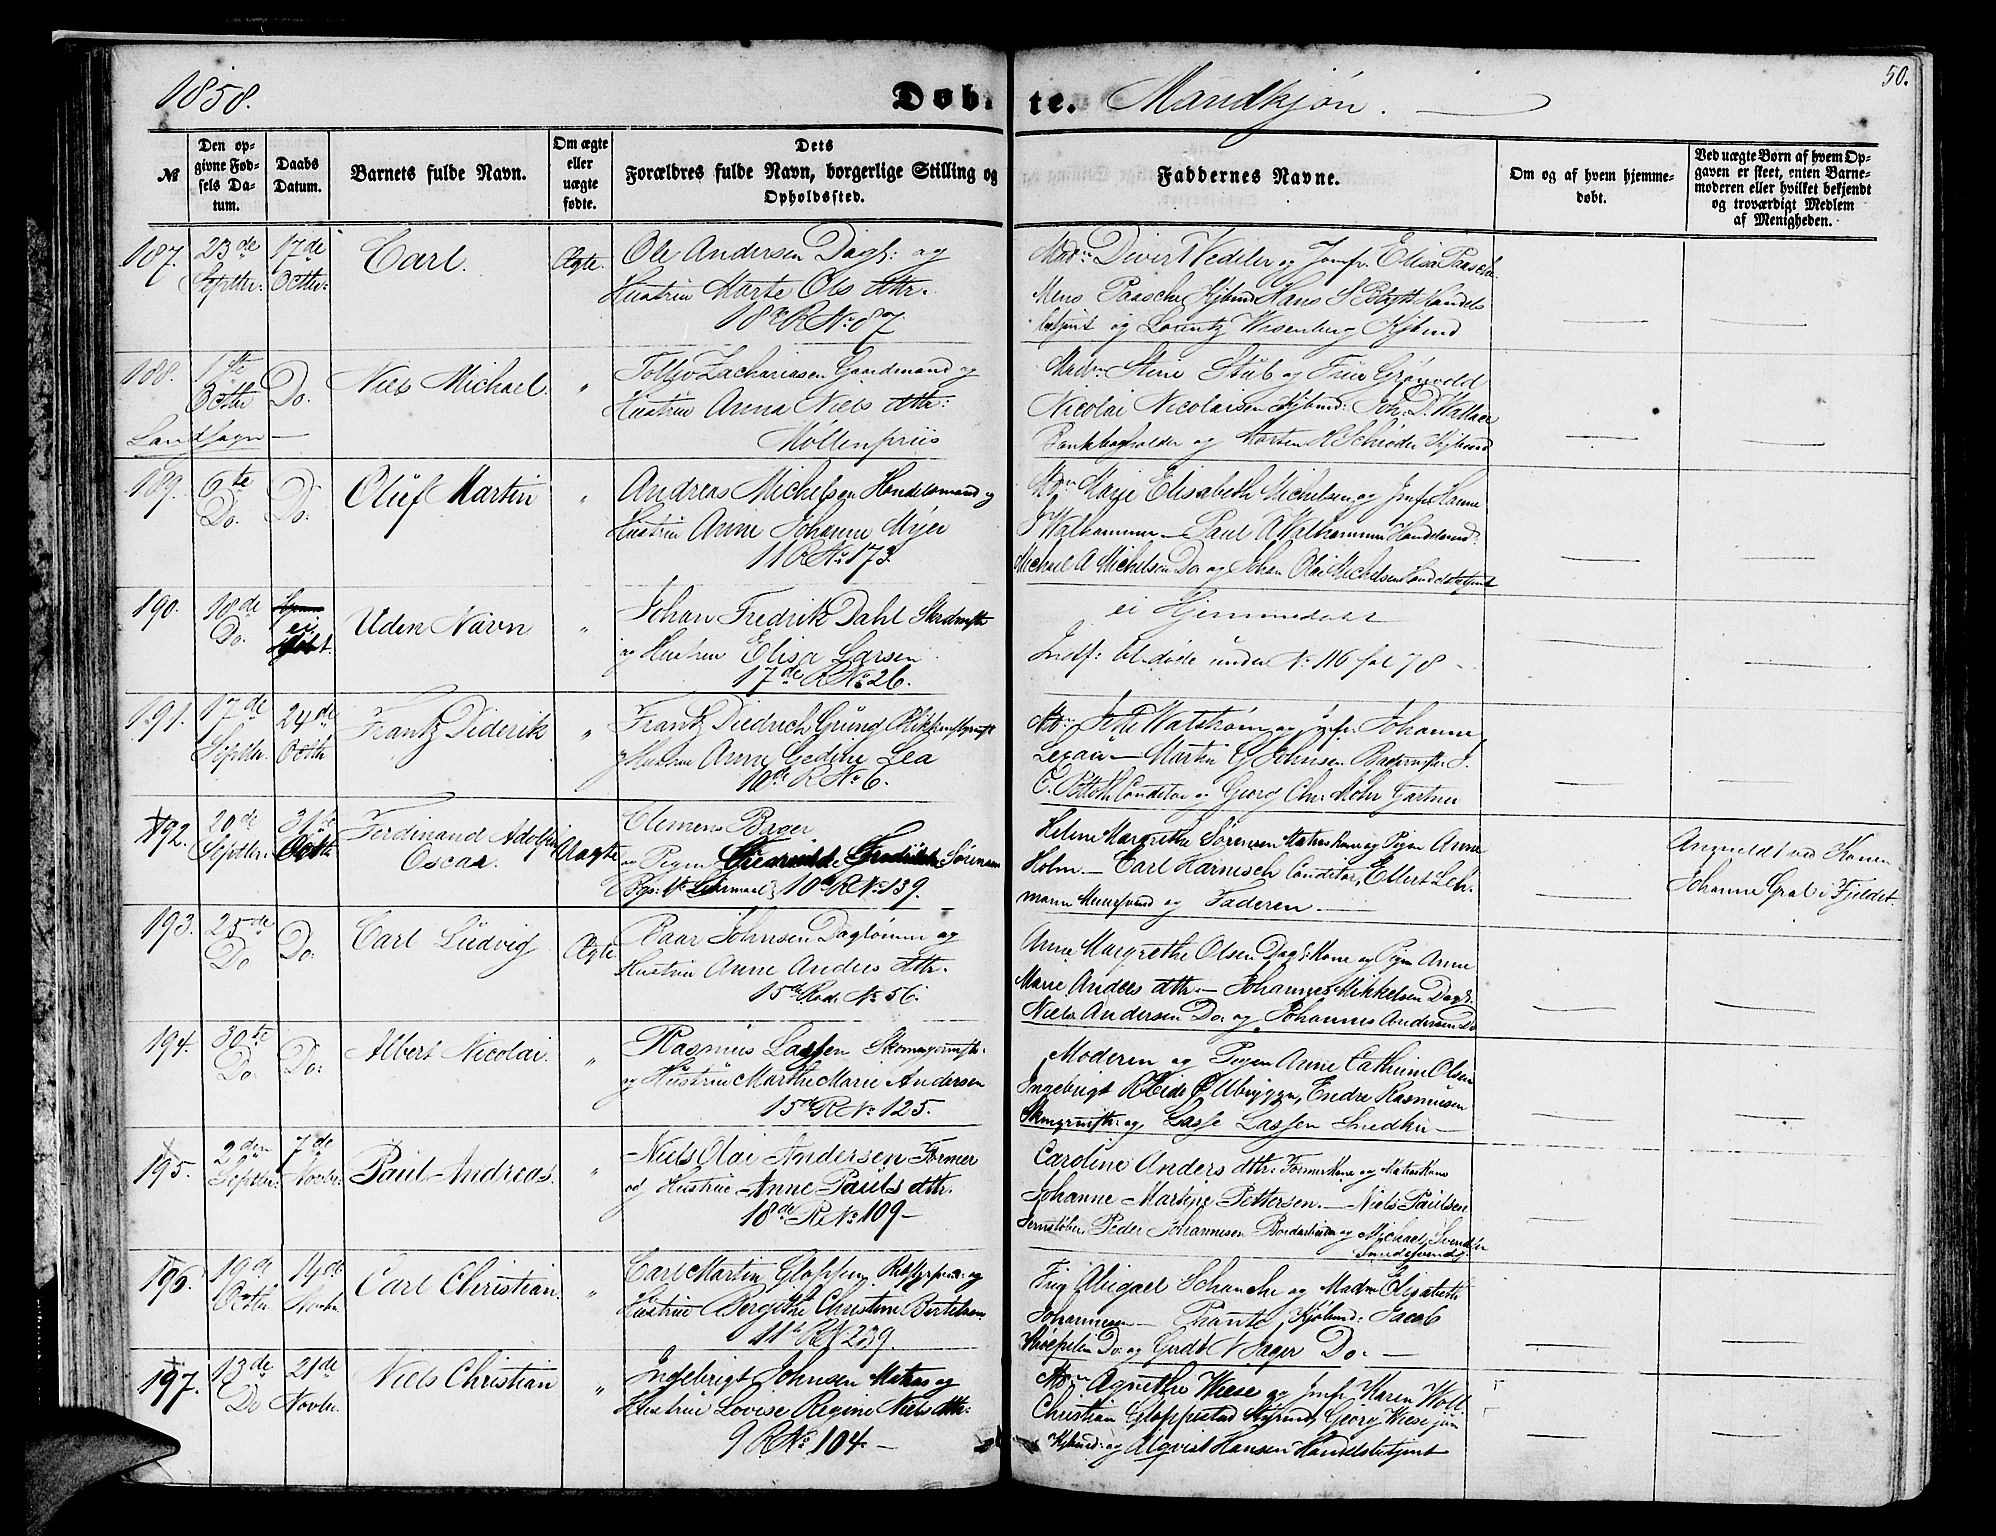 1858.
Døbte. Mandkjøn.
50.
№
Den opgivne Fødsels Datum.
Daabs Datum.
Barnets fulde Navn.
Om ægte eller uægte fødte.
Dets Forældres fulde Navn, borgerlige Stilling og Opholdssted.
Faddernes Navne.
Om og af hvem hjemmedøbt.
Ved uægte Børn af hvem Opgaven er skeet, enten Barnemoderen eller hvilket bekjendt og troværdigt Medlem af Menigheden.
187. 23de Septbr: 17de Octbr: Carl. Ægte.
Ole Andersen Dagl: og
Hustrue Marte Ols dttr.
18de R No: 87
Madm Divert Vedeler og Jomfr. Elisa Paasche
Mens Paasche Kjbmd Hans
og Lorentz Wesenberg Kjbmd
188. 1ste Octbr Do. Niels Michael. "
Landsogn
Tollev Zachariasen Gaardmand og
Hustrue Anna Niels dttr:
Møllenpriis
Madm Stine Stub og Frue Grønvold
Nicolai Nicolaisen Kjbmd: Joh. D. Wallace
Bankbogholder og Morten Schrøder Kjbmd
189. 6te Do. Do. Oluf Martin "
Andreas Michelsen Handelsmand og
Hustrue Anne Johanne Mejer
11 R No: 173
Mdm Marie Elisabeth Michelsen og Jmfr Hanne
Walhammer - Paul A Walhammer Handelsmd:
Michael A Michelsen Do og Johan Olai Michelsen Handelsbetjent
190. 18de Do. ei døbt. Uden Navn "
Johan Fredrik Dahl
og Hustrue Elisa Larsen
17de R No 26.
ei Hjemmedøbt
Indf: bl. døde under No 116 fol 78 -
191. 17de Septbr. 24de Octbr Frantz Diderik "
Frantz Diedrich Grung Blikkenslagermstr
og Hustrue Anne Gedine Lea
10de R No 6.
Mdm Watstrøm og Jmfr. Johanne
Lexau - Martin G Johnsen Bagermstr. J.
C. Conditor og Georg Chr. Mohr Gartner
192. 20de Septbr: 31te Octbr. Ferdinand Adolph Oscar. Uægte
Clemens Bager
og Pigen Fredrikke Sørensen
10de R No 139.
Helene Margrethe Sørensen Matroskone og Pigen Anne
Holm. - Carl Harnisch Conditor, Ellert Leh-
mann og Faderen. -
Anmeldt ved Konen
Johanne Gral i Fjeldet.
193. 25de Do Do. Carl Ludvig Ægte
Paar Johnsen Daglønner og
Hustrue Anne Anders dttr.
15de Rode No 56.
Anne Margrethe Olsen Dagl: Kone og Pigen Anne
Marie Anders dttr - Johannes Mikkelsen Dagl.
Niels Andersen Do og Johannes Andersen Do
194. 30te Do. Do: Albert Nicolai. "
Rasmus Lassen Skomagermstr.
og Hustrue Marthe Marie Andersen
15de R No 125.
Moderen og Pigen Anne Cathrine Olsen
Ingebrigt, Endre Rasmusen
Skomgrmstr. og Lasse Lassen Snedker -
195. 2den Septbr: 7de Novbr: Paul Andreas. "
Niels Olai Andersen Former
og Hustrue Anne Pauls dttr.
18de R No 109 -
Caroline Anders dttr. Formerkone og Matroskone
Johanne Martine Pettersen. - Niels Paulsen
Jernstøber, Peder Johannesen Bordarbeider og Michael Svendsen
Smedesvend.
196. 19de Octbr. 14de Novbr. Carl Christian. "
Carl Martin Gloppen og
Hustrue Bergithe Christine Bertelsen
11te R No 239.
Frue Abigael Schanche og Madm Elisabeth
Johannesen - Kjøbmd: Jacob
Do og Gerdt Jæger Do. -
197. 13de Do 21de Novbr. Niels Christian "
Ingebrigt Johnsen Matros og
Hustrue Lovise Regine Niels dttr:
9 R No. 104. -
Mdm Agnethe Wiese og Jmfr Karen Woll
Christian Gloppestad Styrmd, Georg Wiese jun
Kjbmd: og Alqvist Hansen Handelsbetjent